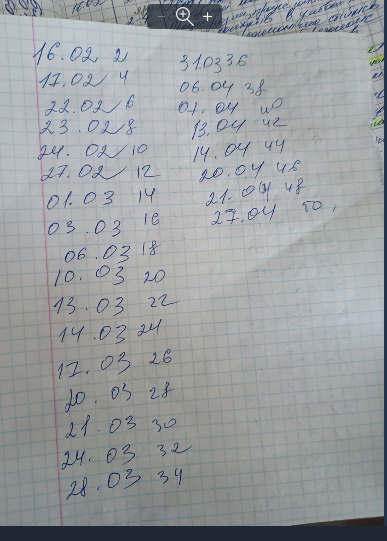 16.02 2
17.02 4
22.02 6
23.02 8
24.02 10
27.02 12
01.03 14
03.03 16
06.03 18
10.03 20
13.03 22
14.03 24
17.03 26
20.03 28
21.03 30
24.03 32
28.03 34
310336
06.04 38
07.04 40
13.04 42
14.04 44
20.04 46
21.04 48
27.04 50,